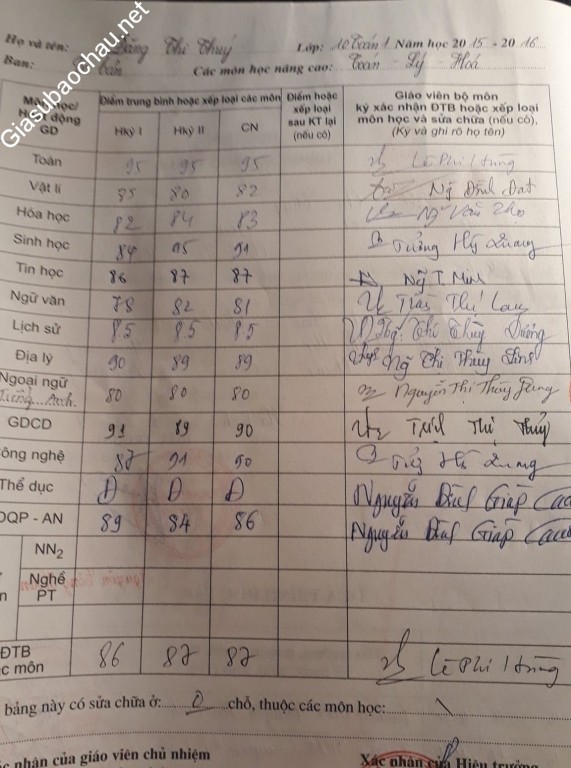 Giasubaochau.net
Họ và tên: Đặng Thị Thuý Lớp: 10 Toán 1 Năm học 2015 - 2016
Ban: Các môn học nâng cao: Toán - Lý - Hoá
Môn học/ Hoạt động GD Điểm trung bình hoặc xếp loại các môn Điểm hoặc xếp loại sau KT lại (nếu có) Giáo viên bộ môn ký xác nhận ĐTB hoặc xếp loại môn học và sửa chữa (nếu có). (Ký và ghi rõ họ tên)
Hkỳ I Hkỳ II CN
Toán 95 95 95 Lê Phi Hùng
Vật lí 85 80 82 Ng Đình Đạt
Hóa học 82 84 83 Ng Văn
Sinh học 84 95 91 Tưởng Hg Quang
Tin học 86 87 87 Ng T. Minh
Ngữ văn 78 82 81 Trần Thị Lan
Lịch sử 8.5 8.5 8.5 Thị Thùy Dương
Địa lý 90 89 89 Ng Thị Thuý
Ngoại ngữ 80 80 80 Nguyễn Thị Thùy Dung
Tiếng Anh
GDCD 91 89 90 Trịnh Thị Thủy
Công nghệ 87 91 90 Hg Quang
Thể dục Đ Đ Đ Nguyễn Đình Giáp
DQP - AN 89 84 86 Nguyễn Đình Giáp
NN2
n Nghề PT
ĐTB 86 87 87 Lê Phi Hùng
c môn
bảng này có sửa chữa ở: 0 chỗ, thuộc các môn học: \
c nhận của giáo viên chủ nhiệm Xác nhận của Hiệu trưởng